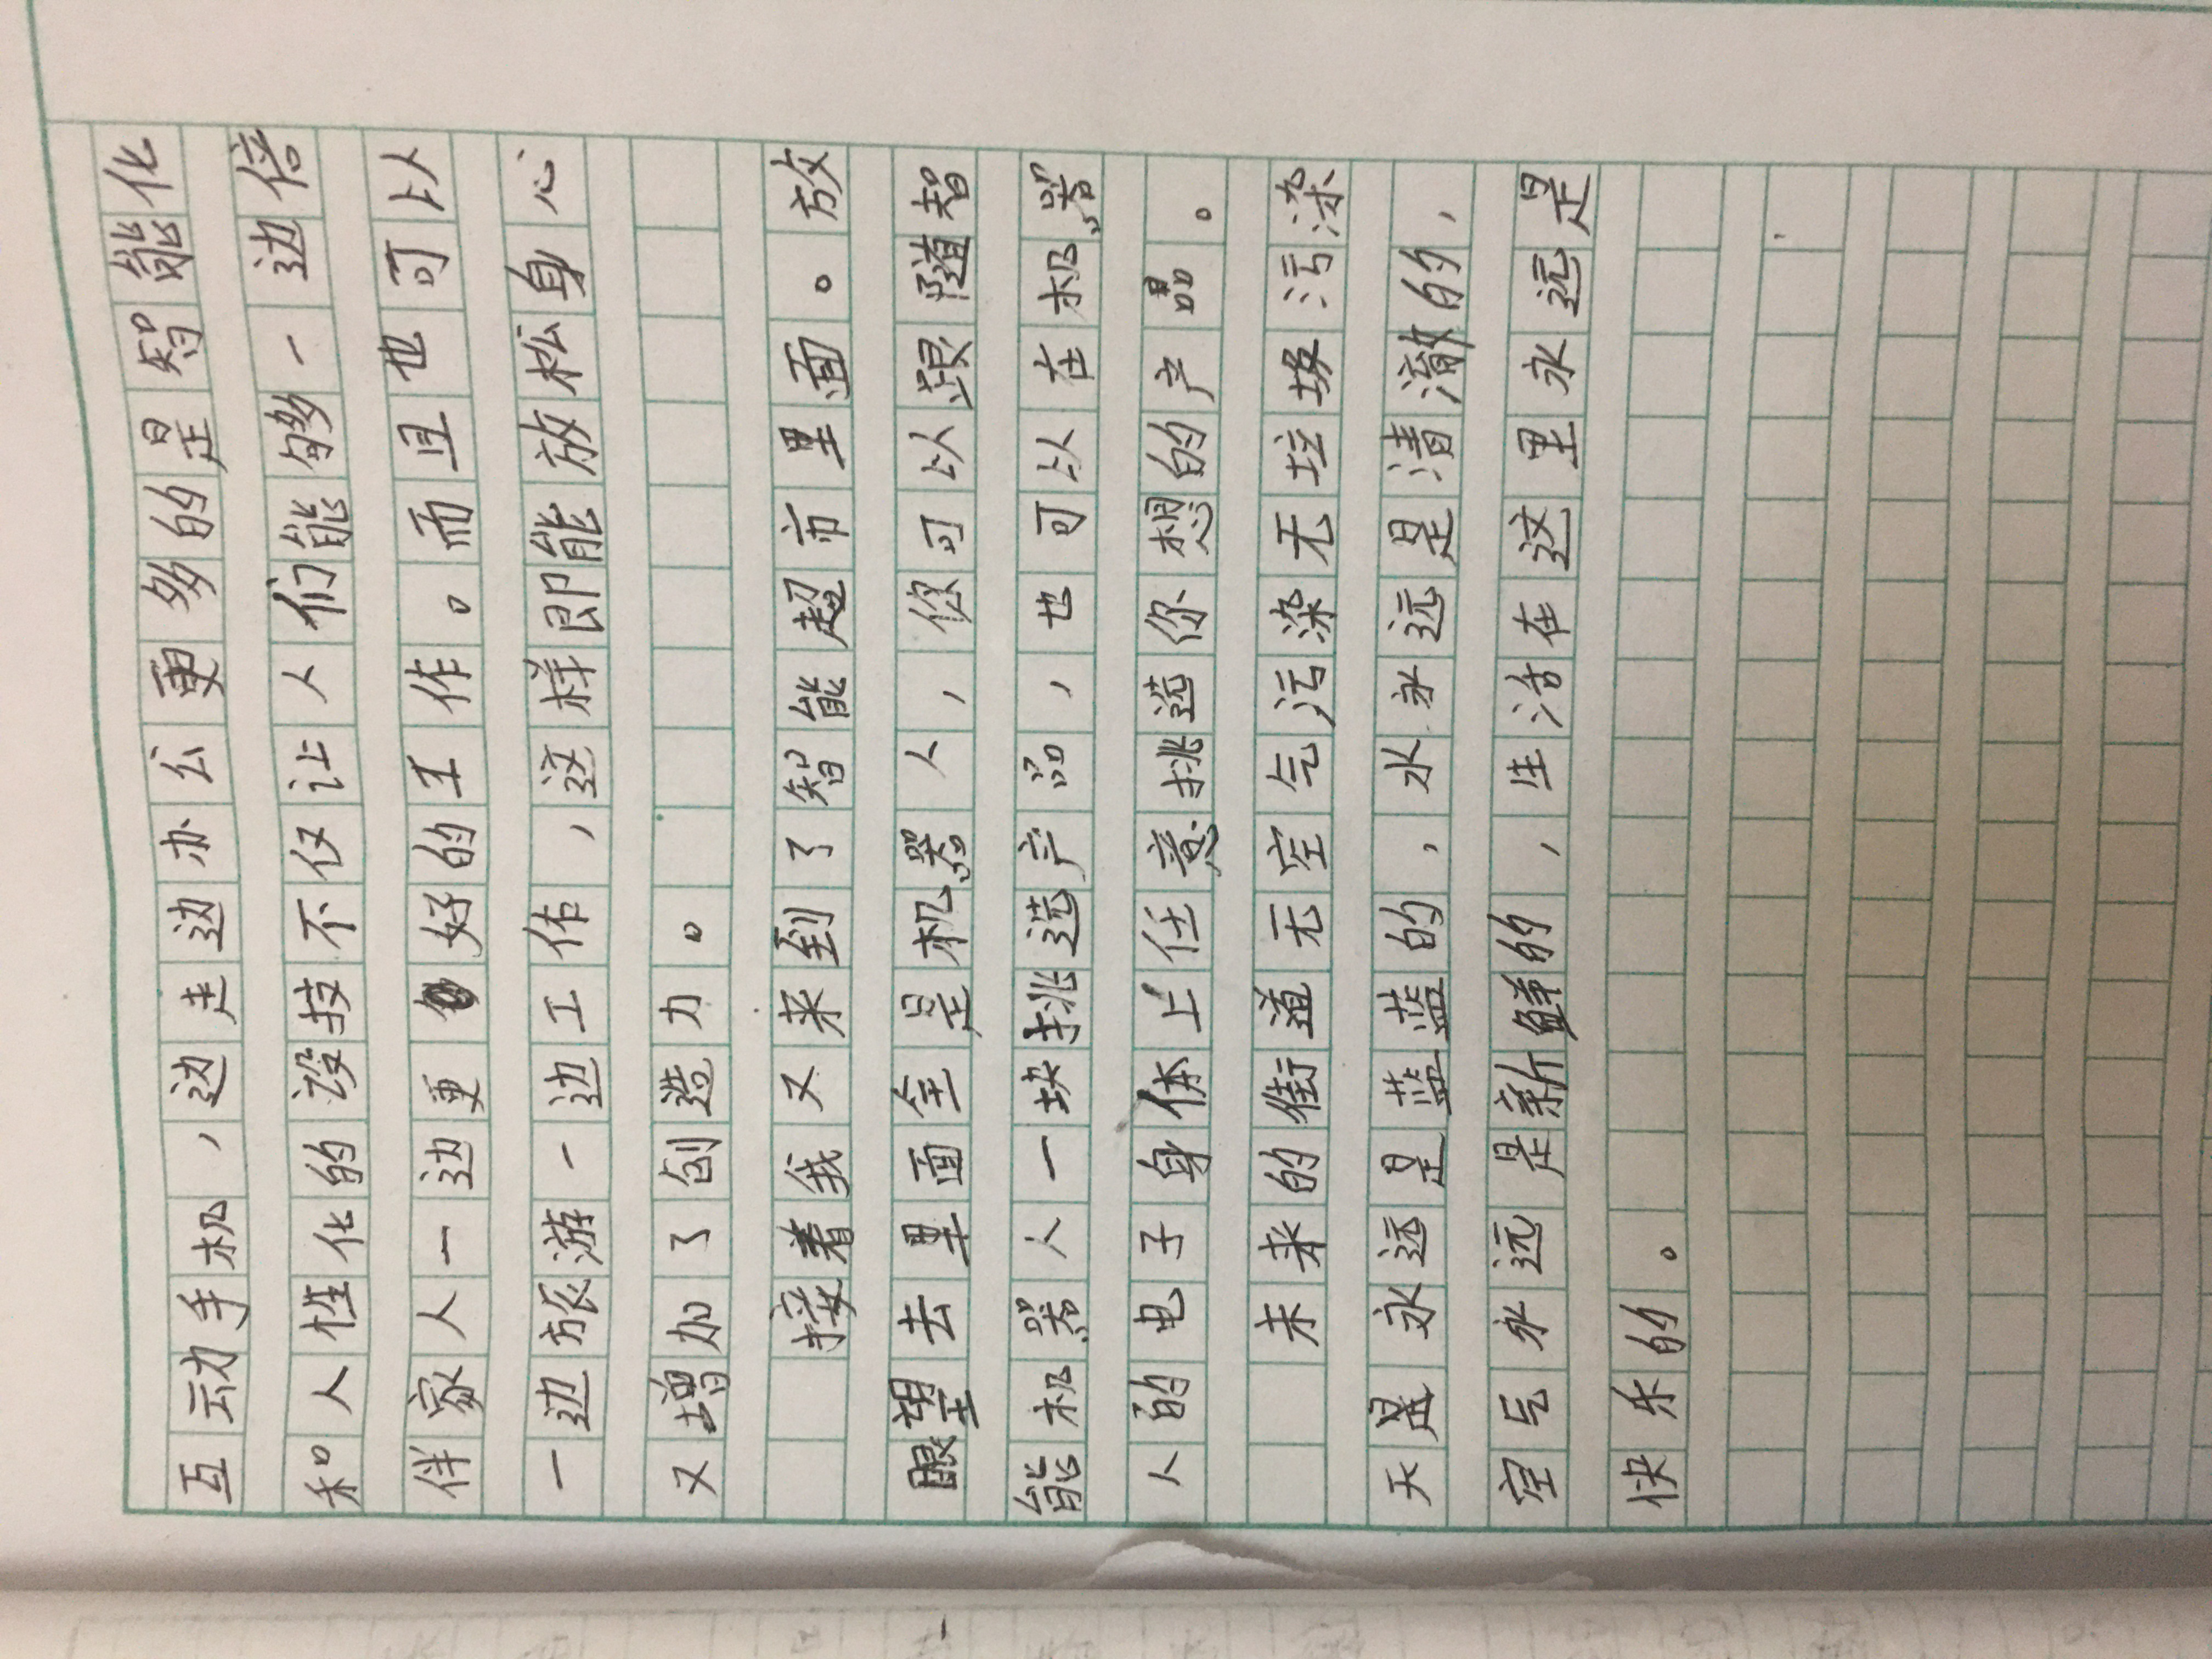 互动手机，边走边办公更多的是智能化
和人性化的设技不仅让人们能够一边倍
伴家人一边更好的工作。而且也可以
一边旅游一边工作，这样即能放松身心
又增加了创造力。
接着我又来到了智能超市里面。放
眼望去里面全是机器人，您可以跟随智
能机器人一块挑选产品，也可以在机器
人的电子身体上任意挑选你想的产品。
未来的街道无空气污染无垃圾污染
天是永远是蓝蓝的，水永远是清澈的，
空气永远是新鲜的，生活在这里永远是
快乐的。